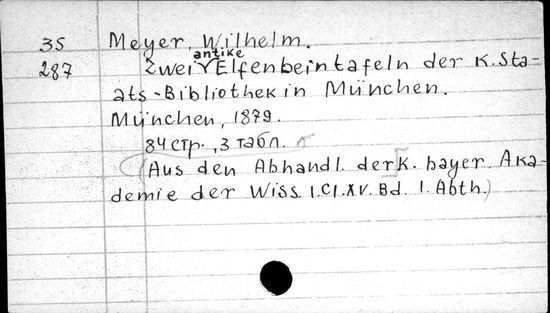 35 Meyer, Wilhelm.
antike
287 Zwei Elfenbeintafeln der K. Sta-
ats-Bibliothek in München.
München, 1879.
84 стр., 3 табл.
(Aus den Abhandl. der K. bayer. Aka-
demie der Wiss. I. Cl. XV. Bd. I. Abth.)